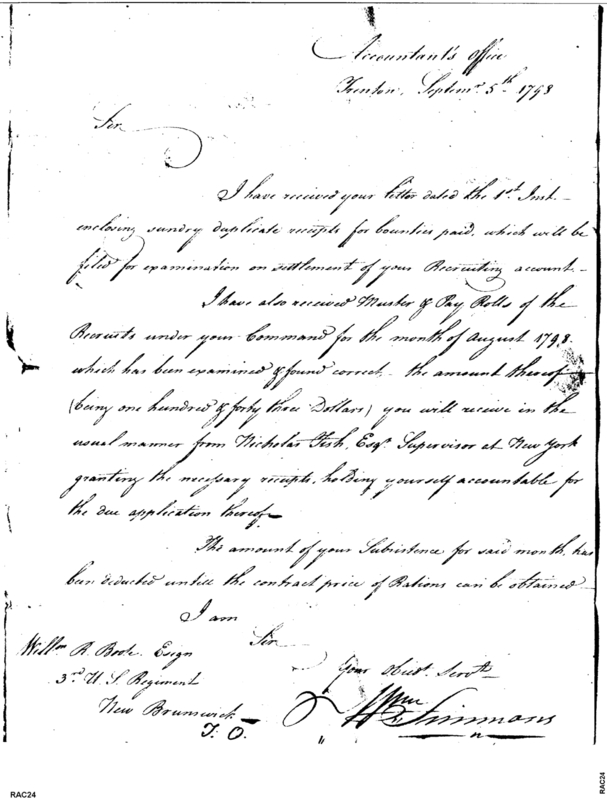 Accountant's Office
Trenton, Septemr. 5th 1798
Sir
I have received your letter dated the 1st. Inst.
enclosing sundry duplicate receipts for bounties paid, which will be
filed for examination on settlement of your Recruiting account
I have also received Muster & Pay Rolls of the
Recruits under your Command for the month of August 1798.
which has been examined & found correct, the amount thereof
(being one hundred & forty three Dollars) you will receive in the
usual manner from Nicholas Fish, Esqr. Supervisor at New York
granting the necessary receipts, holding yourself accountable for
the due application thereof
The amount of your Subsistence for said month, has
been deducted untill the contract price of Rations can be obtained
I am
Sir
Your Obedt. Servt.
Wm Simmons
Willm R. Boote Esign
3rd U. S. Regiment
New Brunswick
RAC24
RAC24